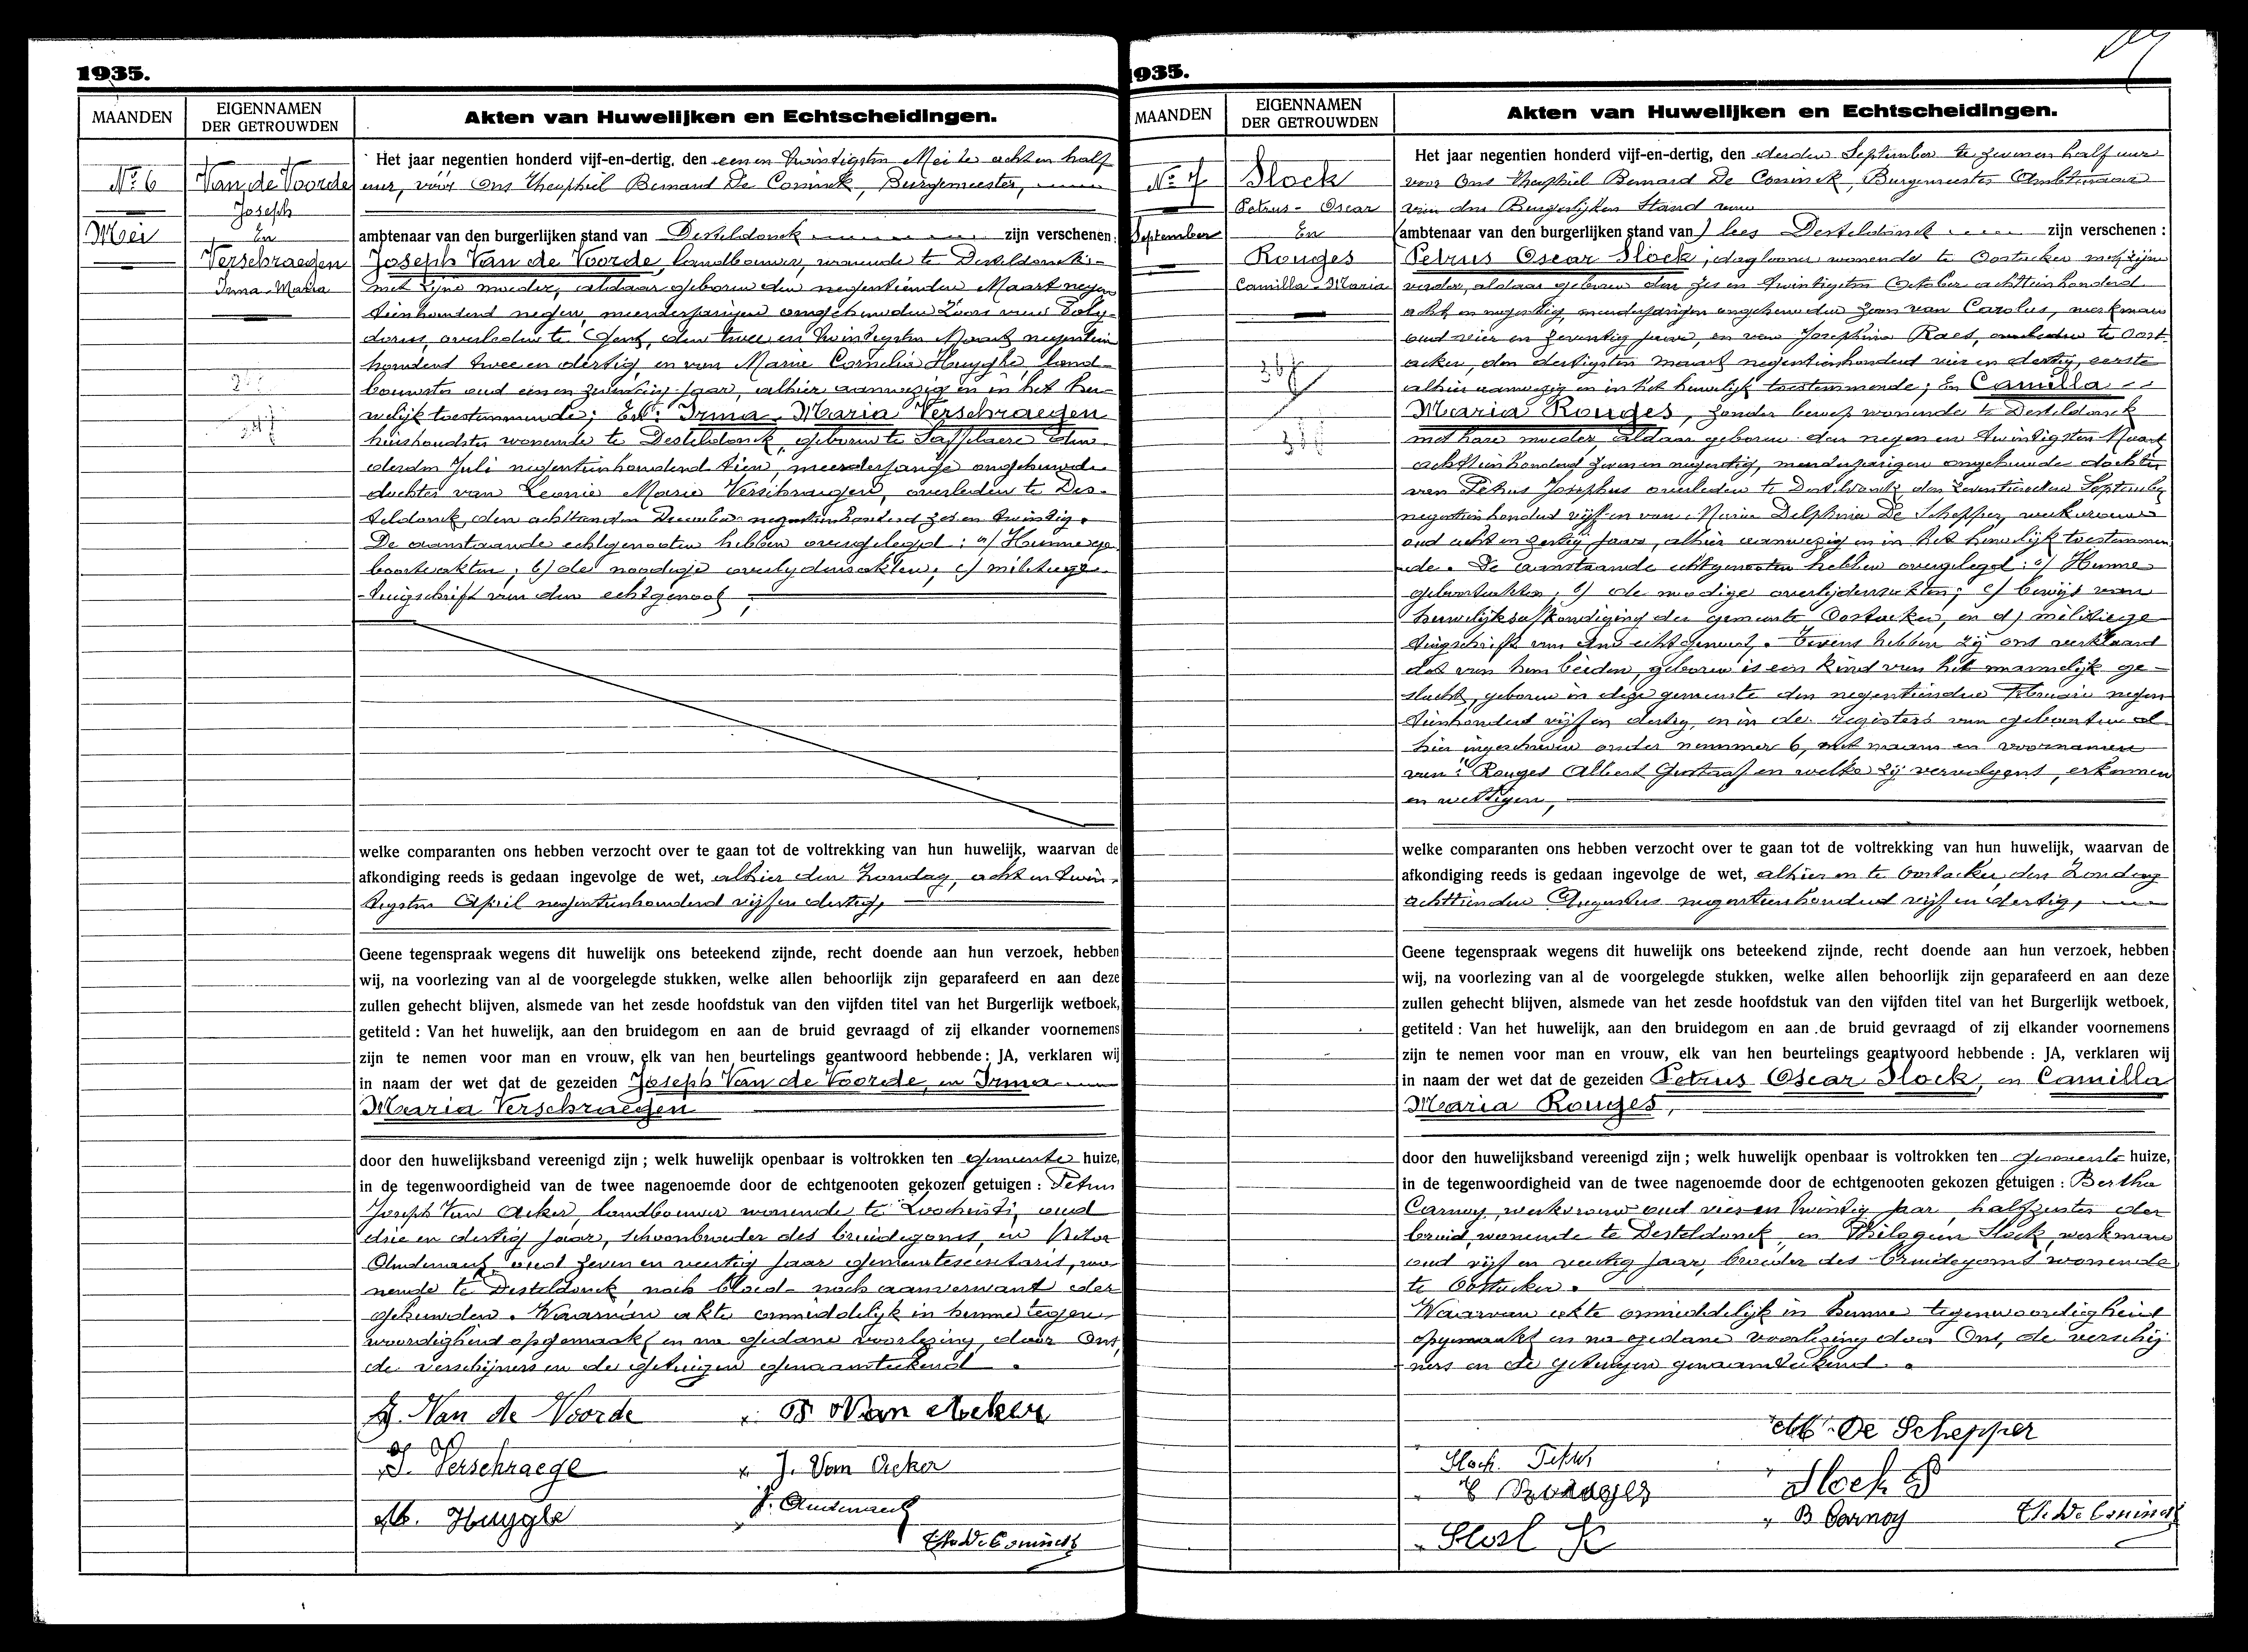 1935.
MAANDEN
EIGENNAMEN
DER GETROUWDEN
Akten van Huwelijken en Echtscheidingen.
No 6
Mei
Van de Voorde
Joseph
En
Verschraegen
Irma-Maria
Het jaar negentien honderd vijf-en-dertig, den eenen twintigsten Mei te acht en half
uur, vóór Ons Theophiel Bernard De Coninck, Burgemeester,
ambtenaar van den burgerlijken stand van Desteldonck zijn verschenen:
Joseph Van de Voorde, landbouwer, wonende te Desteldonck
met zijne moeder, aldaar geboren den negentienden Maart negen
tienhonderd negen, meerderjarigen ongehuwden Zoon van Poly-
dorus, overleden te Gent, den twee en twintigsten Maart negentien
honderd twee en dertig, en van Marie Cornelia Huyghe, land-
bouwster oud een en zeventig jaar, alhier aanwezig en in het hu-
welijk toestemmende; En: Irma-Maria Verschraegen
huishoudster wonende te Desteldonck, geboren te Saffelaere den
derden Juli negentienhonderd tien, meerderjarige ongehuwde
dochter van Leonie Marie Verschraegen, overleden te Des-
teldonck den achttienden December negentienhonderd zes en twintig.
De aanstaande echtgenooten hebben overgelegd: a/ Hunne ge-
boorteakten; b/ de noodige overlydensakten; c/ militiege-
tuigschrift van den echtgenoot,
welke comparanten ons hebben verzocht over te gaan tot de voltrekking van hun huwelijk, waarvan de
afkondiging reeds is gedaan ingevolge de wet, alhier den Zondag, acht en twin-
tigsten April negentienhonderd vijf en dertig,
Geene tegenspraak wegens dit huwelijk ons beteekend zijnde, recht doende aan hun verzoek, hebben
wij, na voorlezing van al de voorgelegde stukken, welke allen behoorlijk zijn geparafeerd en aan deze
zullen gehecht blijven, alsmede van het zesde hoofdstuk van den vijfden titel van het Burgerlijk wetboek,
getiteld: Van het huwelijk, aan den bruidegom en aan de bruid gevraagd of zij elkander voornemens
zijn te nemen voor man en vrouw, elk van hen beurtelings geantwoord hebbende: JA, verklaren wij
in naam der wet dat de gezeiden Joseph Van de Voorde, en Irma
Maria Verschraegen
door den huwelijksband vereenigd zijn; welk huwelijk openbaar is voltrokken ten gemeente huize,
in de tegenwoordigheid van de twee nagenoemde door de echtgenooten gekozen getuigen: Petrus
Joseph Van Acker, landbouwer wonende te Loochristi, oud
drie en dertig jaar, schoonbroeder des bruidegoms, en Victor
Oudenaert, oud zeven en veertig jaar gemeentesecretaris, wo-
nende te Desteldonck noch bloed- noch aanverwant der
gehuwden. Waarvan akte onmiddelijk in hunne tegen-
woordigheid opgemaakt en na gedane voorlezing, door Ons,
de verschijners en de getuigen genaamteekend.
J. Van de Voorde
P. Van Acker
I. Verschraege
J. Van Acker
M. Huyghe
V. Oudenaert
Th. De Coninck
1935.
MAANDEN
EIGENNAMEN
DER GETROUWDEN
Akten van Huwelijken en Echtscheidingen.
No 7
September
Slock
Petrus-Oscar
En
Rouges
Camilla-Maria
Het jaar negentien honderd vijf-en-dertig, den derden September te zeven en half uur
voor Ons Theophiel Bernard De Coninck, Burgemeester Ambtenaar
van den Burgerlijken Stand van
(ambtenaar van den burgerlijken stand van) lees Desteldonck zijn verschenen:
Petrus Oscar Slock, daglooner wonende te Oostacker met zijn
vader, aldaar geboren den zes en twintigsten October achttienhonderd
acht en negentig, meerderjarigen ongehuwden zoon van Carolus, werkman
oud vier en zeventig jaar, en van Josephina Raes, overleden te Oost-
acker, den dertigsten maart negentienhonderd vier en dertig, eerste
alhier aanwezig en in het huwelijk toestemmende; En Camilla
Maria Rouges, zonder beroep wonende te Desteldonck
met hare moeder, aldaar geboren den negen en twintigsten Maart
achttienhonderd zeven en negentig, meerderjarigen ongehuwde dochter
van Petrus Josephus overleden te Desteldonck den zeventienden September
negentienhonderd vijf en van Maria Delphina De Schepper, werkvrouw
oud acht en zestig jaar, alhier aanwezig en in het huwelijk toestemmen-
de. De aanstaande echtgenooten hebben overgelegd: a/ Hunne
geboorteakten; b/ de noodige overlijdensakten; c/ bewijs van
huwelijksafkondiging der gemeente Oostacker, en d) militiege-
tuigschrift van den echtgenoot. Tevens hebben zij ons verklaard
dat van hen beiden, geboren is een kind van het mannelijk ge-
slacht, geboren in deze gemeente den negentienden Februari negen
tienhonderd vijf en dertig, en in de registers van geboorten al-
hier ingeschreven onder nummer 6, met naam en voornamen
van: Rouges Albert Gustaaf en welke zij vervolgens, erkennen
en wettigen,
welke comparanten ons hebben verzocht over te gaan tot de voltrekking van hun huwelijk, waarvan de
afkondiging reeds is gedaan ingevolge de wet, alhier en te Oostacker, den Zondag
achttienden Augustus negentienhonderd vijf en dertig,
Geene tegenspraak wegens dit huwelijk ons beteekend zijnde, recht doende aan hun verzoek, hebben
wij, na voorlezing van al de voorgelegde stukken, welke allen behoorlijk zijn geparafeerd en aan deze
zullen gehecht blijven, alsmede van het zesde hoofdstuk van den vijfden titel van het Burgerlijk wetboek,
getiteld: Van het huwelijk, aan den bruidegom en aan de bruid gevraagd of zij elkander voornemens
zijn te nemen voor man en vrouw, elk van hen beurtelings geantwoord hebbende: JA, verklaren wij
in naam der wet dat de gezeiden Petrus Oscar Slock, en Camilla
Maria Rouges,
door den huwelijksband vereenigd zijn; welk huwelijk openbaar is voltrokken ten gemeente huize,
in de tegenwoordigheid van de twee nagenoemde door de echtgenooten gekozen getuigen: Bertha
Carnoy, werkvrouw oud vier en twintig jaar, halfzuster der
bruid, wonende te Desteldonck, en Philogien Slock, werkman
oud vijf en veertig jaar, broeder des bruidegoms wonende
te Oostacker.
Waarvan akte onmiddelijk in hunne tegenwoordigheid
opgemaakt en na gedane voorlezing door Ons, de verschij-
ners en de getuigen genaamteekend.
M. De Schepper
Slock Petrus
Slock P
C Rouages
B Carnoy
Th. De Coninck